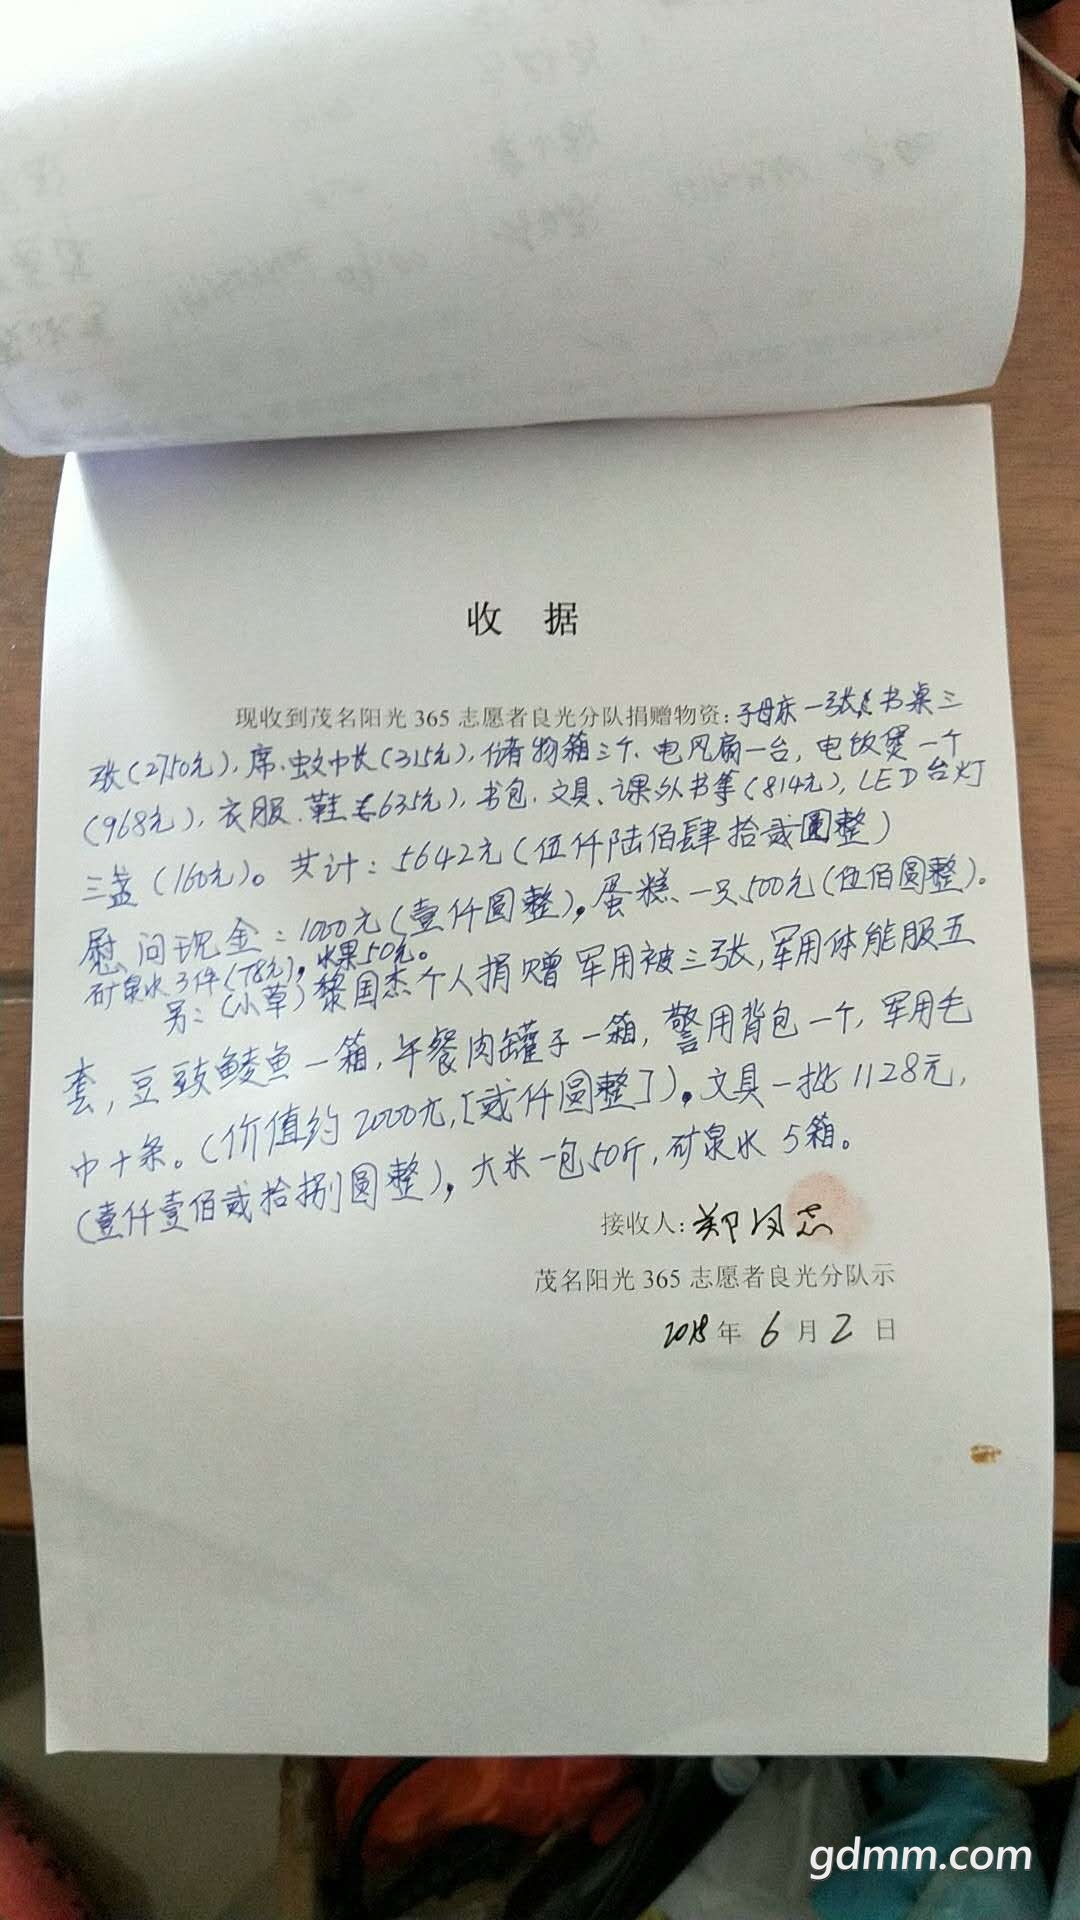 收 据
现收到茂名阳光365志愿者良光分队捐赠物资:子母床一张,书桌三
张(2750元),席、蚊巾长(315元),储物箱三个、电风扇一台,电饭煲一个
(968元),衣服.鞋635元),书包.文具、课外书等(814元),LED台灯
三盏(160元)。共计:5642元(伍仟陆佰肆拾贰圆整)
慰问现金:1000元(壹仟圆整),蛋糕一只500元(伍佰圆整)。
矿泉水3件(78元),水果50元。
另:(小草)黎国杰个人捐赠军用被三张,军用体能服五
套,豆豉鲮鱼一箱,午餐肉罐子一箱,警用背包一个,军用毛
巾十条。(价值约2000元,[贰仟圆整])。文具一批1128元,
(壹仟壹佰贰拾捌圆整),大米一包50斤,矿泉水5箱。
接收人:郑
茂名阳光365志愿者良光分队示
2018年6月2日
gdmm.com